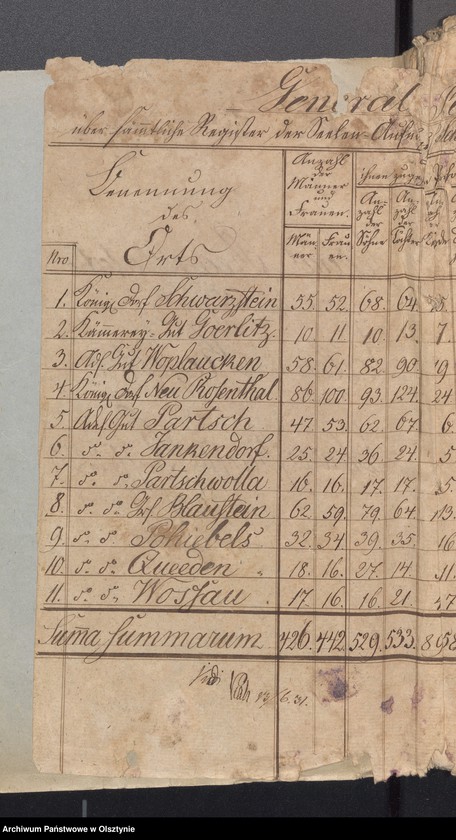 General
über sämmtliche Register der Seelen-Aufn
Benennung des Orts
Anzahl der Männer und Frauen.
ihnen zuge
Nro
Männer
Frauen.
Anzahl der Söhne
Anzahl der Töchter
1. Königl Dorf Schwarzstein 55. 52. 68. 64. 5.
2. Kämmerey-Gut Goerlitz. 10 11 10. 13. 7.
3. Adl. Gut Woplaucken 58. 61. 82. 90 9
4. Königl Dorf Neu Rosenthal. 86 100 93. 124. 24
5. Adel Gut Partsch 47. 53. 62. 67. 6
6. do. do. Jankendorf. 25. 24 36 24. 5
7. do. do. Partschwolla 16. 16. 17. 17. 5.
8. do. do. Blaustein 62. 59. 79. 64. 13.
9. do. do. 32. 34. 39. 35. 16
10. do. do. Queeden 18. 16. 27. 14 11.
11. do. do. Wossau 17. 16. 16. 21.
Suma Summarum 426. 442. 529. 533.
Vidi
13/6. 31.
Archiwum Państwowe w Olsztynie